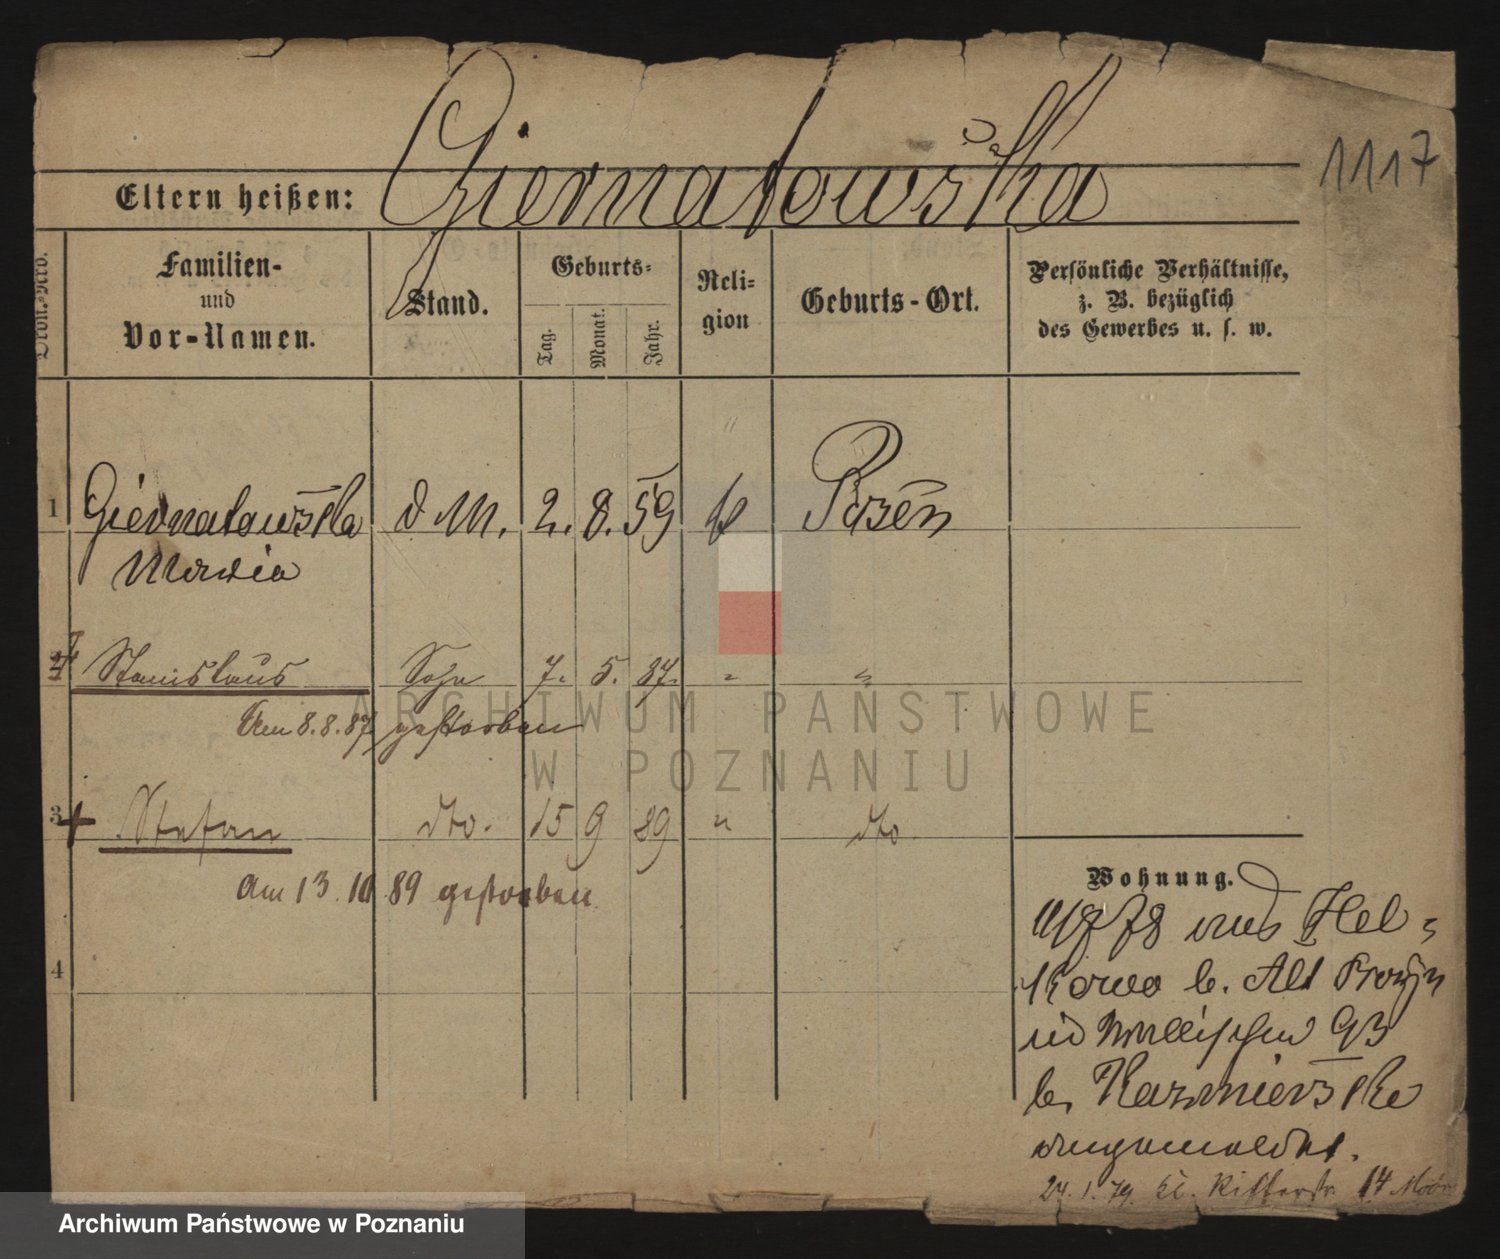 1117
Giernatowska
Eltern heißen:
Familien-
und
Vor-Namen.
Stand.
Geburts-
Tag.
Monat.
Jahr.
Reli-
gion
Geburts-Ort.
Persönliche Verhältnisse,
z. B. bezüglich
des Gewerbes u. s. w.
1 Giernatowska d M. 2. 8. 59 k Posen
Maria
2 Stanislaus Sohn 7. 5. 87. " "
Am 8.8.87 gestorben
3 Stefan dto. 15 9 89 " dto
Am 13.10 89 gestorben
4
Wohnung.
78 aus
b. Alt
93
b. Kazmierska
angemeldet.
24.1.79 Kl. Ritterstr 14
ARCHIWUM PAŃSTWOWE
W POZNANIU
Archiwum Państwowe w Poznaniu